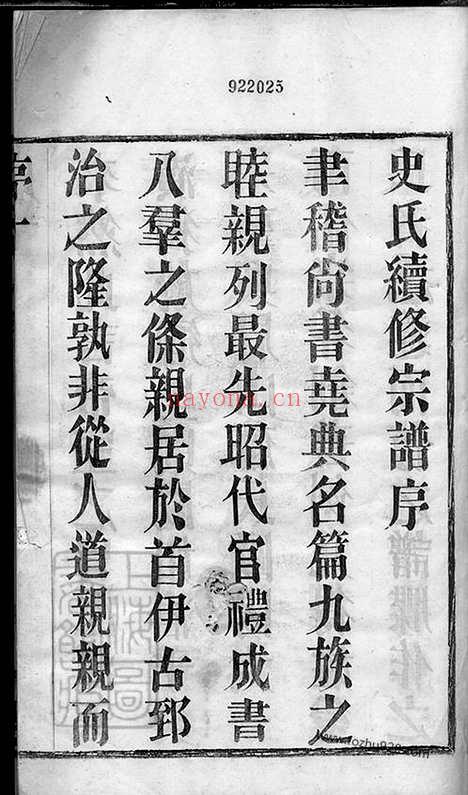 922025
史氏續修宗譜序
聿稽尙書堯典名篇九族之
睦親列最先昭代官禮成書
八羣之條親居於首伊古郅
治之隆孰非從人道親親而
序一
nayona.cn